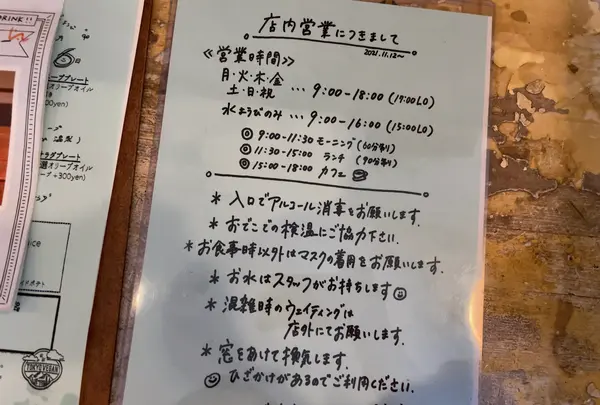 DRINK!!
プレート
オリーブオイル
+300yen)
プレート
選オリーブオイル
+300yen)
店内営業につきまして
2021.11.12〜
≪営業時間≫
月・火・木・金
土・日・祝 … 9:00-18:00 (17:00LO)
水ようびのみ … 9:00-16:00 (15:00LO)
◎ 9:00-11:30 モーニング(60分制)
◎ 11:30-15:00 ランチ (90分制)
◎ 15:00-18:00 カフェ
* 入口でアルコール消毒をお願いします。
* おでこでの検温にご協力下さい。
* お食事時以外はマスクの着用をお願いします。
* お水はスタッフがお持ちします
* 混雑時のウェイティングは
店外にてお願いします。
* 窓をあけて換気します。
ひざかけがあるのでご利用ください。